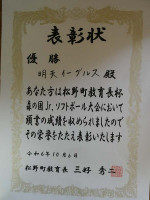 表彰状
優勝
明天イーグルス 殿
あなた方は松野町教育長杯
森の国Jr.ソフトボール大会において
頭書の成績を収められましたので
その栄誉をたたえ表彰いたします
令和6年10月6日
松野町教育長 三好 秀二